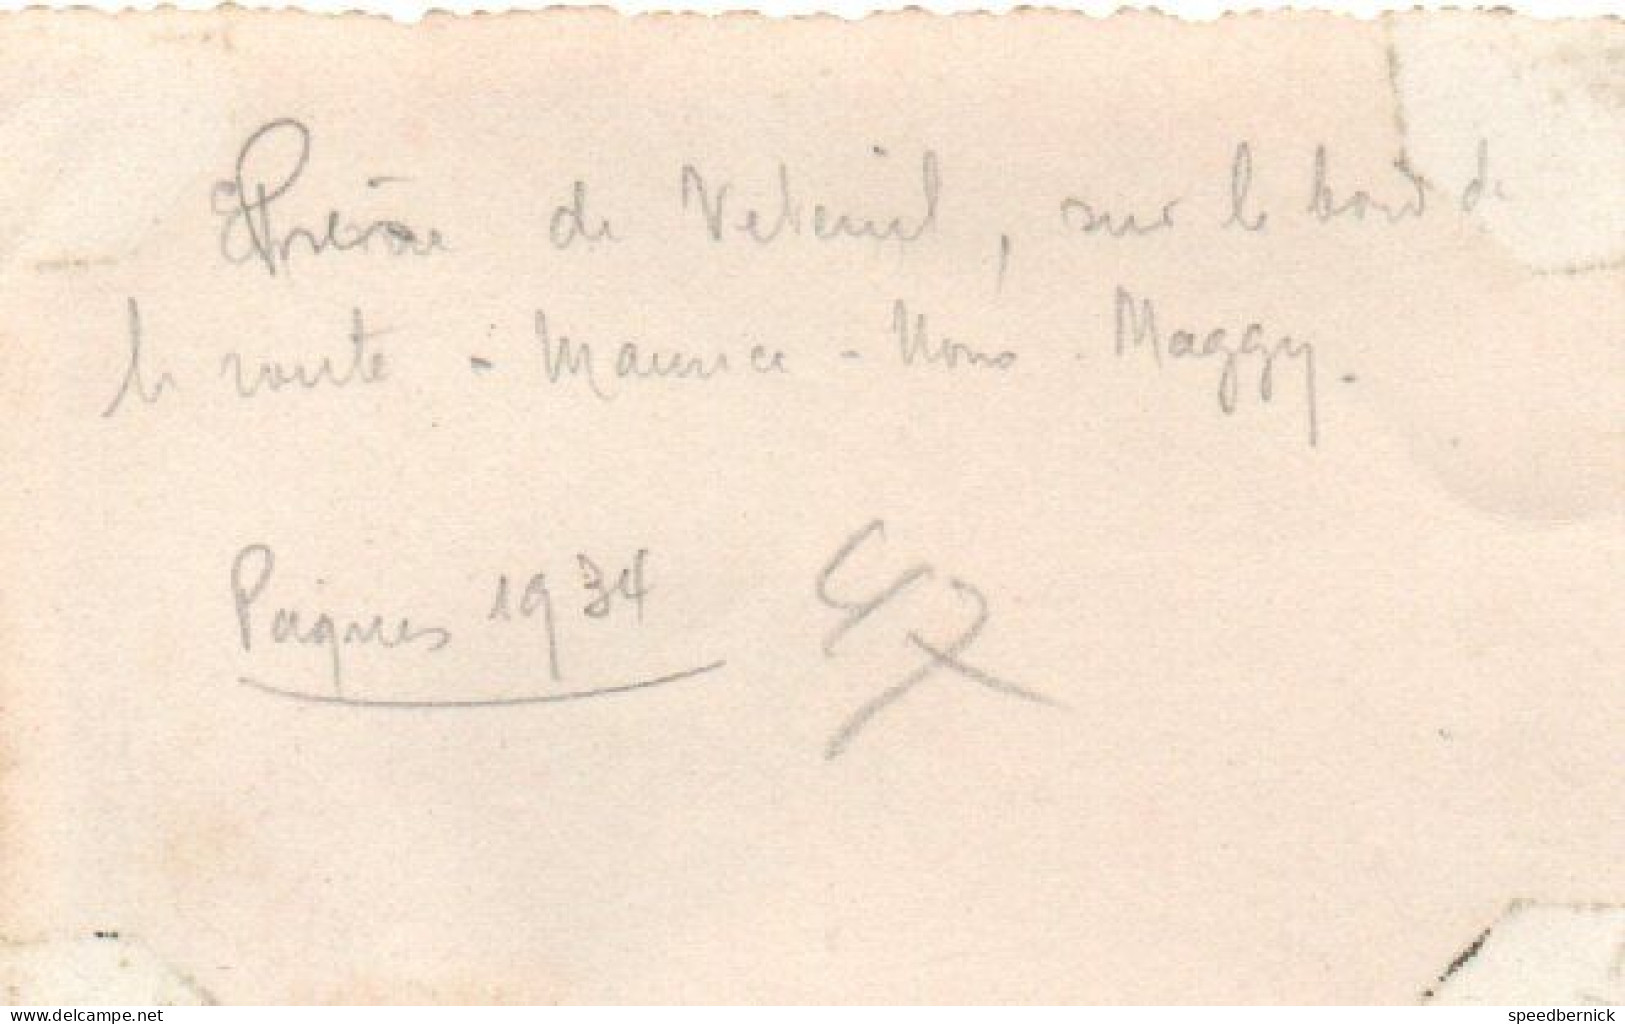 de Veteuil, sur le bord de
la route - Maurice - Nous - Maggy.
Paques 1934
47
www.delcampe.net
speedbernick